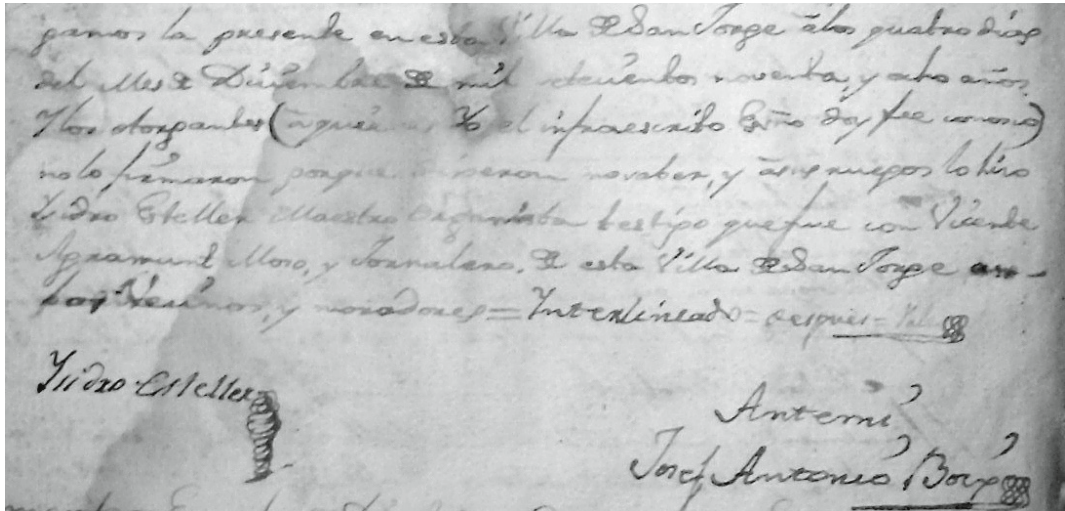 gamos la presente en esta Villa de San Jorge â los quatro dias
del Mes de Diciembre de mil setecientos noventa, y ocho años.
Y los otorgantes (â quienes Yo el infraescrito Essno doy fee conosco)
no lo firmaron porque dixeron no saber, y â sus ruegos lo hizo
Ysidro Esteller Maestro Organista testigo que fue con Vicente
Agramunt Moso, y Jornalero, de esta Villa de San Jorge am-
bos Vecinos, y moradores = Interlineado = despues = Vale
Ysidro Esteller
Antemi
Josef Antonio Boix